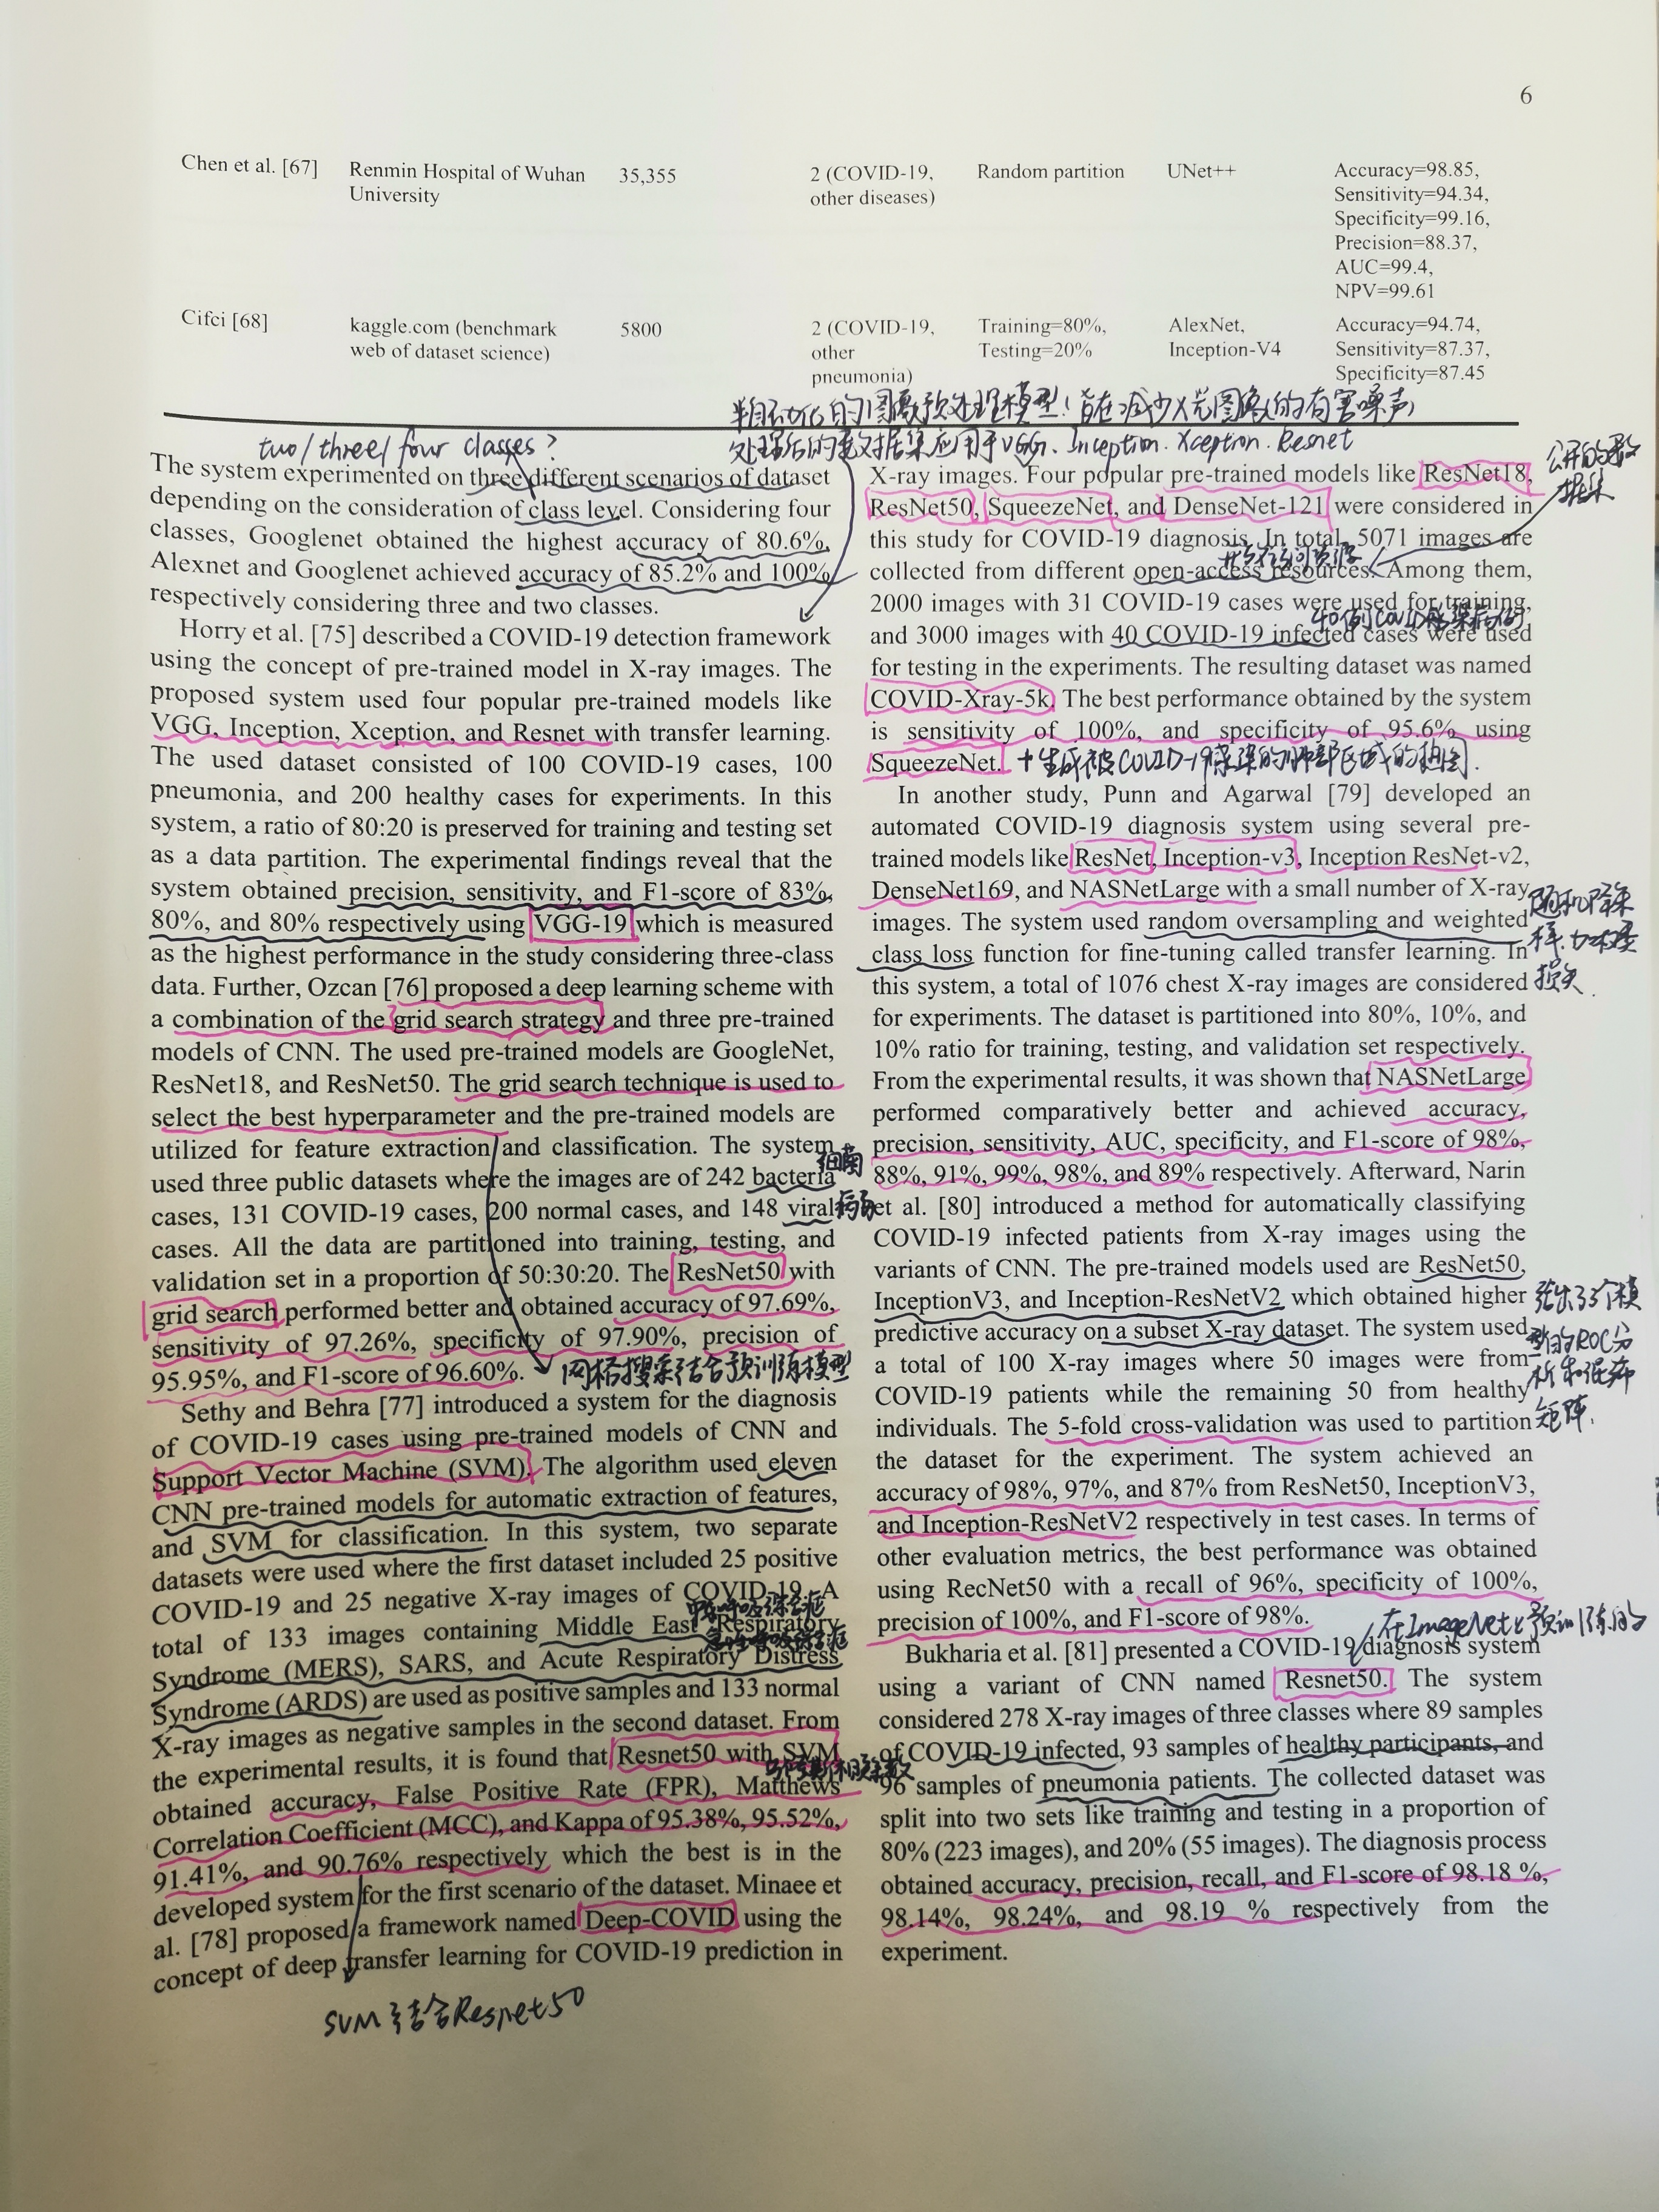 6
Chen et al. [67] Renmin Hospital of Wuhan 35,355 2 (COVID-19, Random partition UNet++ Accuracy=98.85,
University other diseases) Sensitivity=94.34,
Specificity=99.16,
Precision=88.37,
AUC=99.4,
NPV=99.61
Cifci [68] kaggle.com (benchmark 5800 2 (COVID-19, Training=80%, AlexNet, Accuracy=94.74,
web of dataset science) other Testing=20% Inception-V4 Sensitivity=87.37,
pneumonia) Specificity=87.45
半自动化的图像预处理模型!旨在减少X光图像的有害噪声
处理后的数据集应用于VGG. Inception. Xception. Resnet
two/three/four classes?
The system experimented on three different scenarios of dataset
depending on the consideration of class level. Considering four
classes, Googlenet obtained the highest accuracy of 80.6%,
Alexnet and Googlenet achieved accuracy of 85.2% and 100%
respectively considering three and two classes.
Horry et al. [75] described a COVID-19 detection framework
using the concept of pre-trained model in X-ray images. The
proposed system used four popular pre-trained models like
VGG, Inception, Xception, and Resnet with transfer learning.
The used dataset consisted of 100 COVID-19 cases, 100
pneumonia, and 200 healthy cases for experiments. In this
system, a ratio of 80:20 is preserved for training and testing set
as a data partition. The experimental findings reveal that the
system obtained precision, sensitivity, and F1-score of 83%,
80%, and 80% respectively using VGG-19 which is measured
as the highest performance in the study considering three-class
data. Further, Ozcan [76] proposed a deep learning scheme with
a combination of the grid search strategy and three pre-trained
models of CNN. The used pre-trained models are GoogleNet,
ResNet18, and ResNet50. The grid search technique is used to
select the best hyperparameter and the pre-trained models are
utilized for feature extraction and classification. The system
细菌
used three public datasets where the images are of 242 bacteria
cases, 131 COVID-19 cases, 200 normal cases, and 148 viral 病毒
cases. All the data are partitioned into training, testing, and
validation set in a proportion of 50:30:20. The ResNet50 with
grid search performed better and obtained accuracy of 97.69%,
sensitivity of 97.26%, specificity of 97.90%, precision of
95.95%, and F1-score of 96.60%. 网格搜索结合预训练模型
Sethy and Behra [77] introduced a system for the diagnosis
of COVID-19 cases using pre-trained models of CNN and
Support Vector Machine (SVM). The algorithm used eleven
CNN pre-trained models for automatic extraction of features,
and SVM for classification. In this system, two separate
datasets were used where the first dataset included 25 positive
COVID-19 and 25 negative X-ray images of COVID-19. A
total of 133 images containing Middle East Respiratory
Syndrome (MERS), SARS, and Acute Respiratory Distress
Syndrome (ARDS) are used as positive samples and 133 normal
X-ray images as negative samples in the second dataset. From
the experimental results, it is found that Resnet50 with SVM
obtained accuracy, False Positive Rate (FPR), Matthews
Correlation Coefficient (MCC), and Kappa of 95.38%, 95.52%,
91.41%, and 90.76% respectively which the best is in the
developed system for the first scenario of the dataset. Minaee et
al. [78] proposed a framework named Deep-COVID using the
concept of deep transfer learning for COVID-19 prediction in
SVM 结合Resnet50
公开的数
据集
X-ray images. Four popular pre-trained models like ResNet18,
ResNet50, SqueezeNet, and DenseNet-121 were considered in
this study for COVID-19 diagnosis. In total, 5071 images are
collected from different open-access resources. Among them,
2000 images with 31 COVID-19 cases were used for training,
40例COVID感染病例
and 3000 images with 40 COVID-19 infected cases were used
for testing in the experiments. The resulting dataset was named
COVID-Xray-5k. The best performance obtained by the system
is sensitivity of 100%, and specificity of 95.6% using
SqueezeNet. +生成被COVID-19感染的肺部区域的热图.
In another study, Punn and Agarwal [79] developed an
automated COVID-19 diagnosis system using several pre-
trained models like ResNet, Inception-v3, Inception ResNet-v2,
DenseNet169, and NASNetLarge with a small number of X-ray
images. The system used random oversampling and weighted
class loss function for fine-tuning called transfer learning. In
损失.
this system, a total of 1076 chest X-ray images are considered
for experiments. The dataset is partitioned into 80%, 10%, and
10% ratio for training, testing, and validation set respectively.
From the experimental results, it was shown that NASNetLarge
performed comparatively better and achieved accuracy,
precision, sensitivity, AUC, specificity, and F1-score of 98%,
88%, 91%, 99%, 98%, and 89% respectively. Afterward, Narin
et al. [80] introduced a method for automatically classifying
COVID-19 infected patients from X-ray images using the
variants of CNN. The pre-trained models used are ResNet50,
InceptionV3, and Inception-ResNetV2 which obtained higher
predictive accuracy on a subset X-ray dataset. The system used
a total of 100 X-ray images where 50 images were from
COVID-19 patients while the remaining 50 from healthy
individuals. The 5-fold cross-validation was used to partition
the dataset for the experiment. The system achieved an
给出3个模
型的ROC分
析和混淆
矩阵.
accuracy of 98%, 97%, and 87% from ResNet50, InceptionV3,
and Inception-ResNetV2 respectively in test cases. In terms of
other evaluation metrics, the best performance was obtained
using RecNet50 with a recall of 96%, specificity of 100%,
precision of 100%, and F1-score of 98%.
在ImageNet上预训练的
Bukharia et al. [81] presented a COVID-19 diagnosis system
using a variant of CNN named Resnet50. The system
considered 278 X-ray images of three classes where 89 samples
of COVID-19 infected, 93 samples of healthy participants, and
96 samples of pneumonia patients. The collected dataset was
split into two sets like training and testing in a proportion of
80% (223 images), and 20% (55 images). The diagnosis process
obtained accuracy, precision, recall, and F1-score of 98.18 %,
98.14%, 98.24%, and 98.19 % respectively from the
experiment.